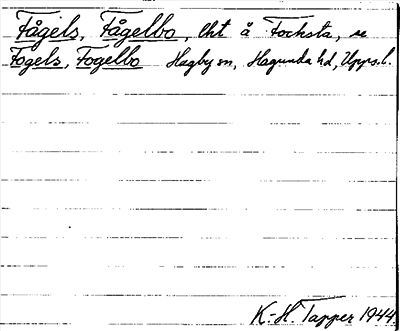 Fågels, Fågelbo, lht å Focksta, se
Fogels, Fogelbo Hagby sn, Hagunda hd, Upps. l.
K.-H. Tapper 1944.